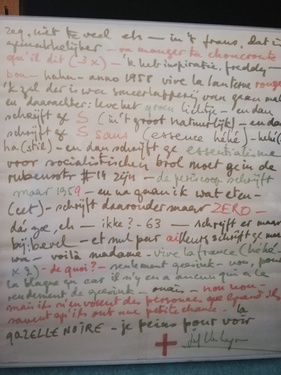 zeg, niet te veel eh — in 't frans, dat is
gemakkelijker — va manger ta choucroute
qu'il dit (3x) — 'k heb inspiratie. freddy
hahaha - anno 1958 vive la lanterne rouge
'k zal der is wa smeerlapperij van
en daarachter: leve het groen lichtje - en dan
schrijft ge S (in't groot natuurlijk) - en dan
schrijft ge S sans (essence héhé) -
ha (stil) - en dan schrijft ge essentialisme
voor socialistischen brol moet ge in de
rubensstr #14 zijn - de periscoop schrijft
maar 1959 - en nu gaan ik wat eten -
(eet) - schrijft daaronder maar ZERO
da's ge, eh — ikke? - 63 — schrijft er maar
bij: bevel - et nul par ailleurs schrijft ge
von - voilà madame - vive la france (héhé
x 3) - de quoi? - seulement - non, pour
la blague car il n'y en a aucun qui a le
rendement de - ouais - non non -
mais ils n'en veulent des personne, que quand ils
savent qu'ils ont une petite chance. la
gAZELLE NOIRE - je peins pour voir